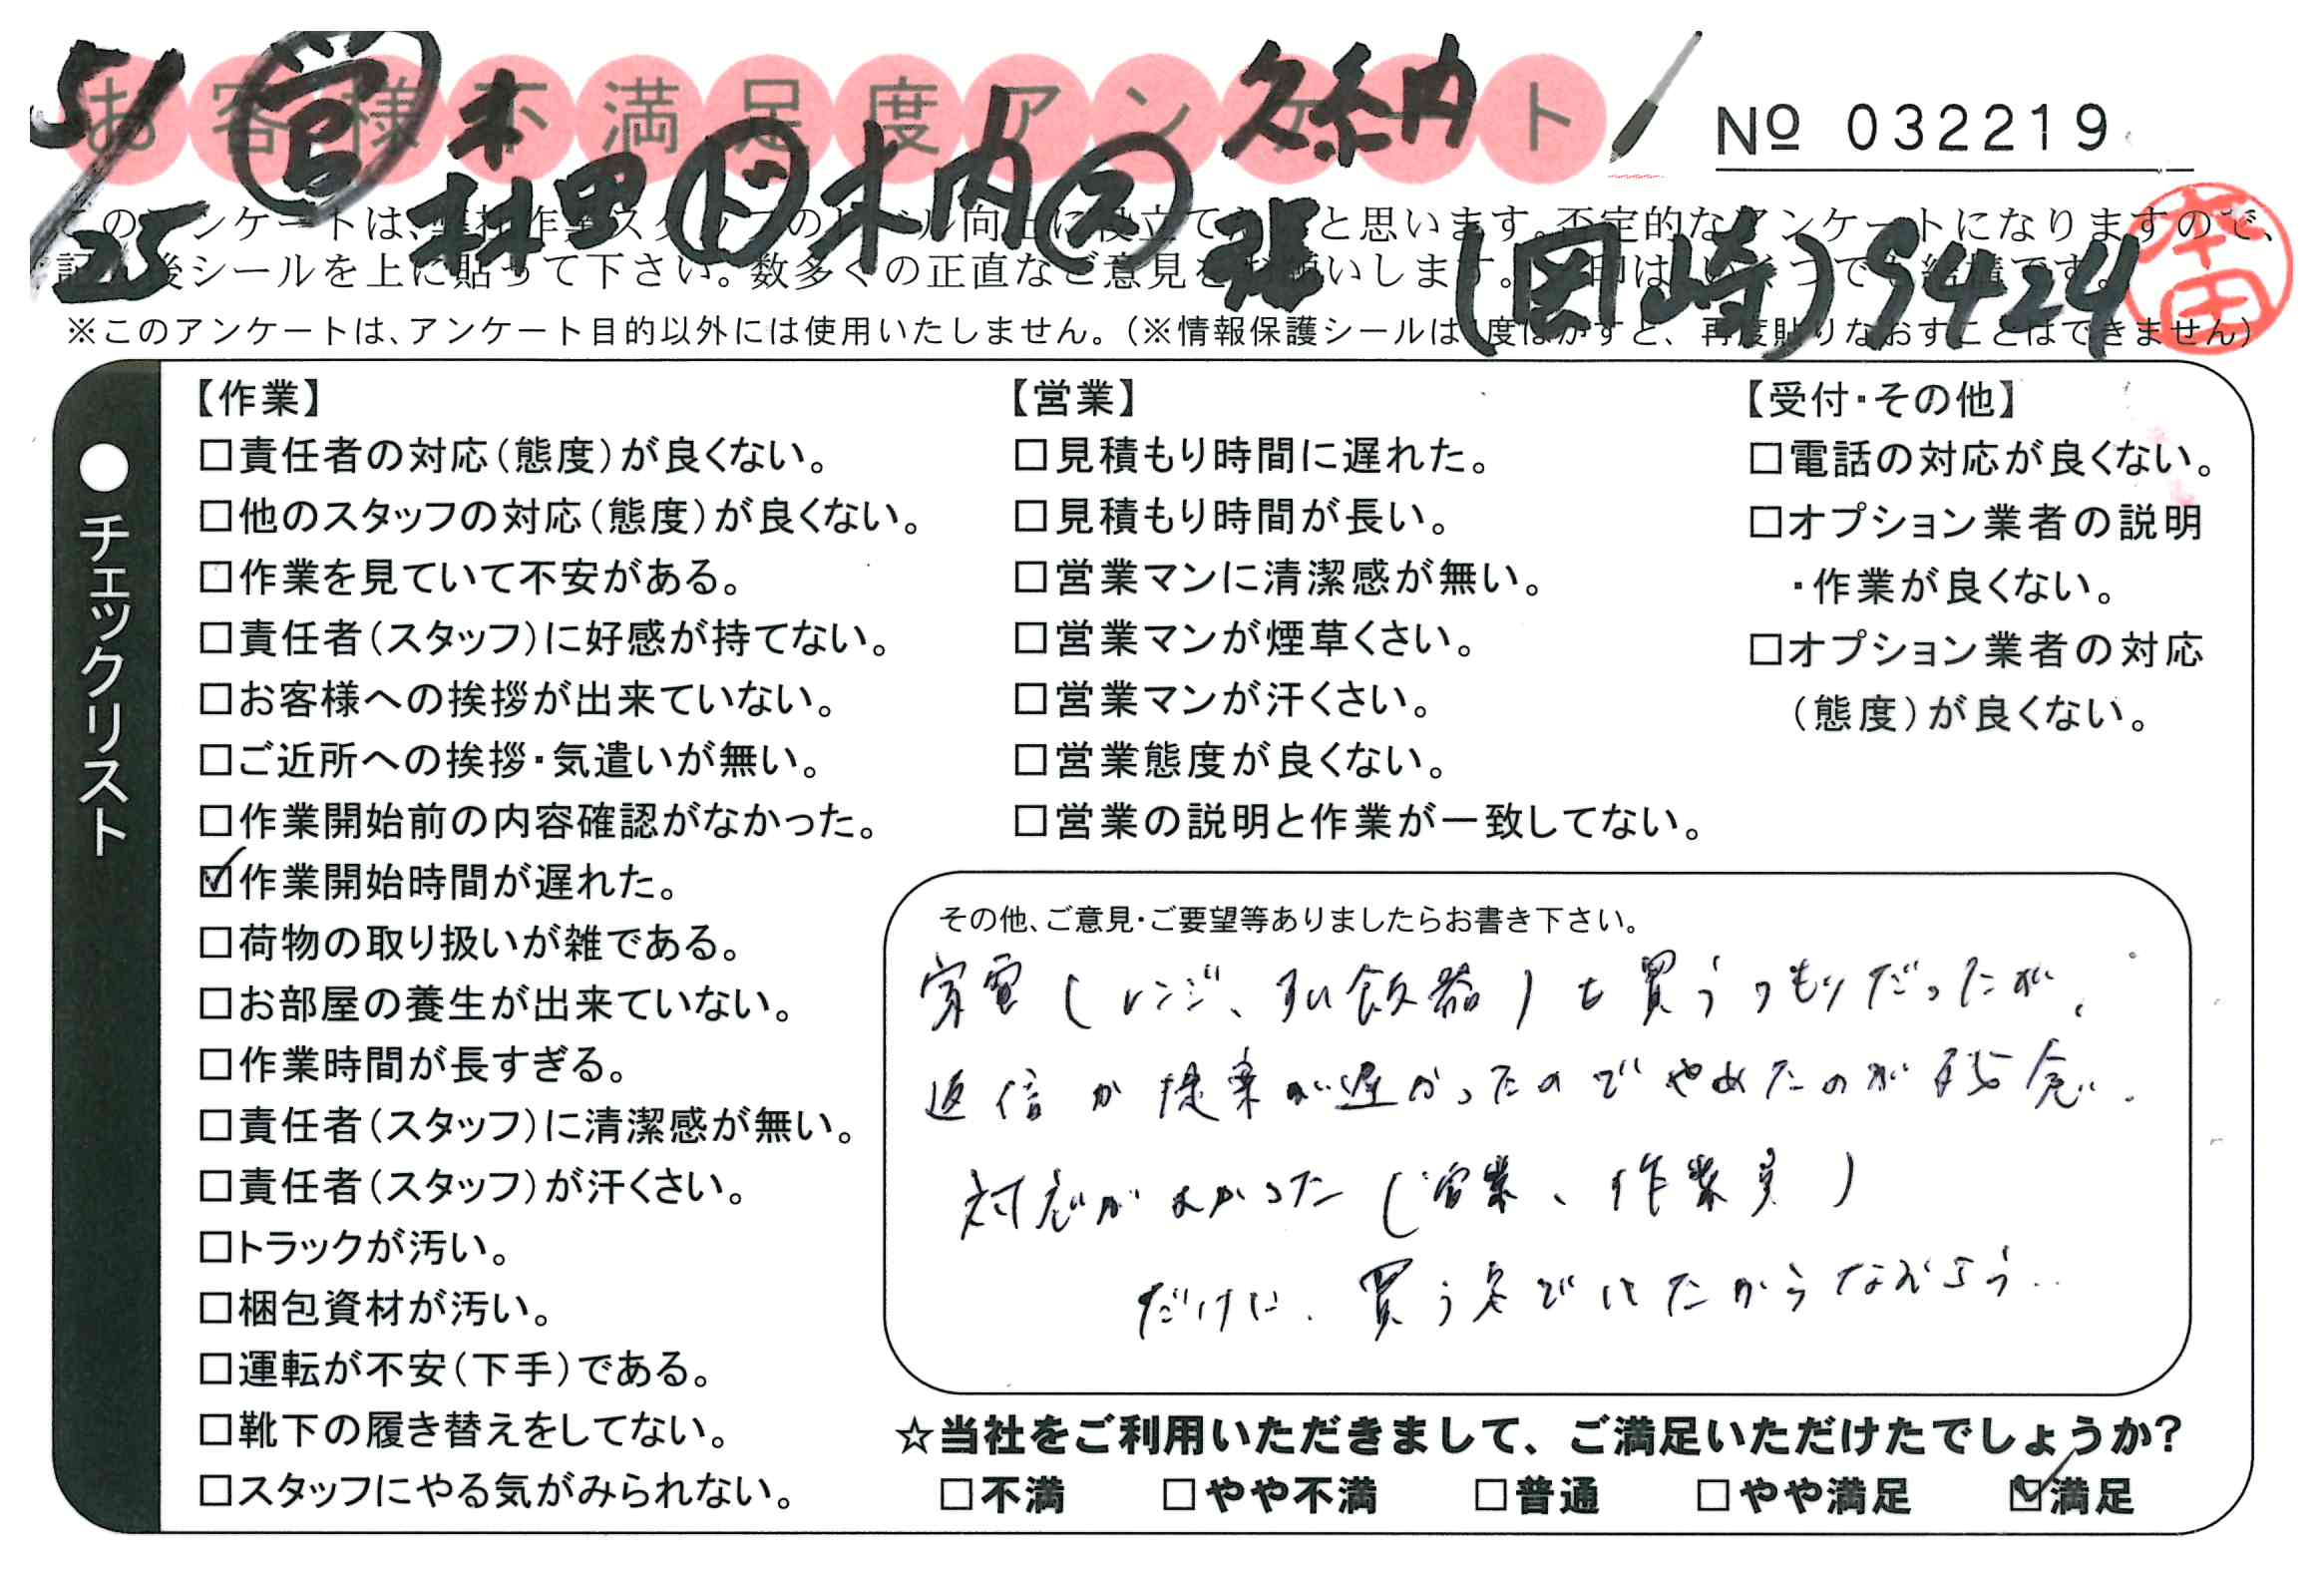 お客様不満足度アンケート
Nº 032219
5/25 営 木 林田 ド 木内 ス 久納 張 (岡崎) 9424
本田
このアンケートは、弊社作業スタッフのレベル向上に役立てたいと思います。不定的なアンケートになりますので、
記入後シールを上に貼って下さい。数多くの正直なご意見をお願いします。
※このアンケートは、アンケート目的以外には使用いたしません。(※情報保護シールは1度はがすと、再度貼りなおすことはできません)
●チェックリスト
【作業】
□責任者の対応(態度)が良くない。
□他のスタッフの対応(態度)が良くない。
□作業を見ていて不安がある。
□責任者(スタッフ)に好感が持てない。
□お客様への挨拶が出来ていない。
□ご近所への挨拶・気遣いが無い。
□作業開始前の内容確認がなかった。
☑作業開始時間が遅れた。
□荷物の取り扱いが雑である。
□お部屋の養生が出来ていない。
□作業時間が長すぎる。
□責任者(スタッフ)に清潔感が無い。
□責任者(スタッフ)が汗くさい。
□トラックが汚い。
□梱包資材が汚い。
□運転が不安(下手)である。
□靴下の履き替えをしてない。
□スタッフにやる気がみられない。
【営業】
□見積もり時間に遅れた。
□見積もり時間が長い。
□営業マンに清潔感が無い。
□営業マンが煙草くさい。
□営業マンが汗くさい。
□営業態度が良くない。
□営業の説明と作業が一致してない。
【受付・その他】
□電話の対応が良くない。
□オプション業者の説明
・作業が良くない。
□オプション業者の対応
(態度)が良くない。
その他、ご意見・ご要望等ありましたらお書き下さい。
家電(レンジ、すい飯器)も買うつもりだったが、
返信か提案が遅かったのでやめたのが残念.
対応がよかった(営業、作業員)
だけに、買う気でいたからなおさら..
☆当社をご利用いただきまして、ご満足いただけたでしょうか?
□不満 □やや不満 □普通 □やや満足 ☑満足